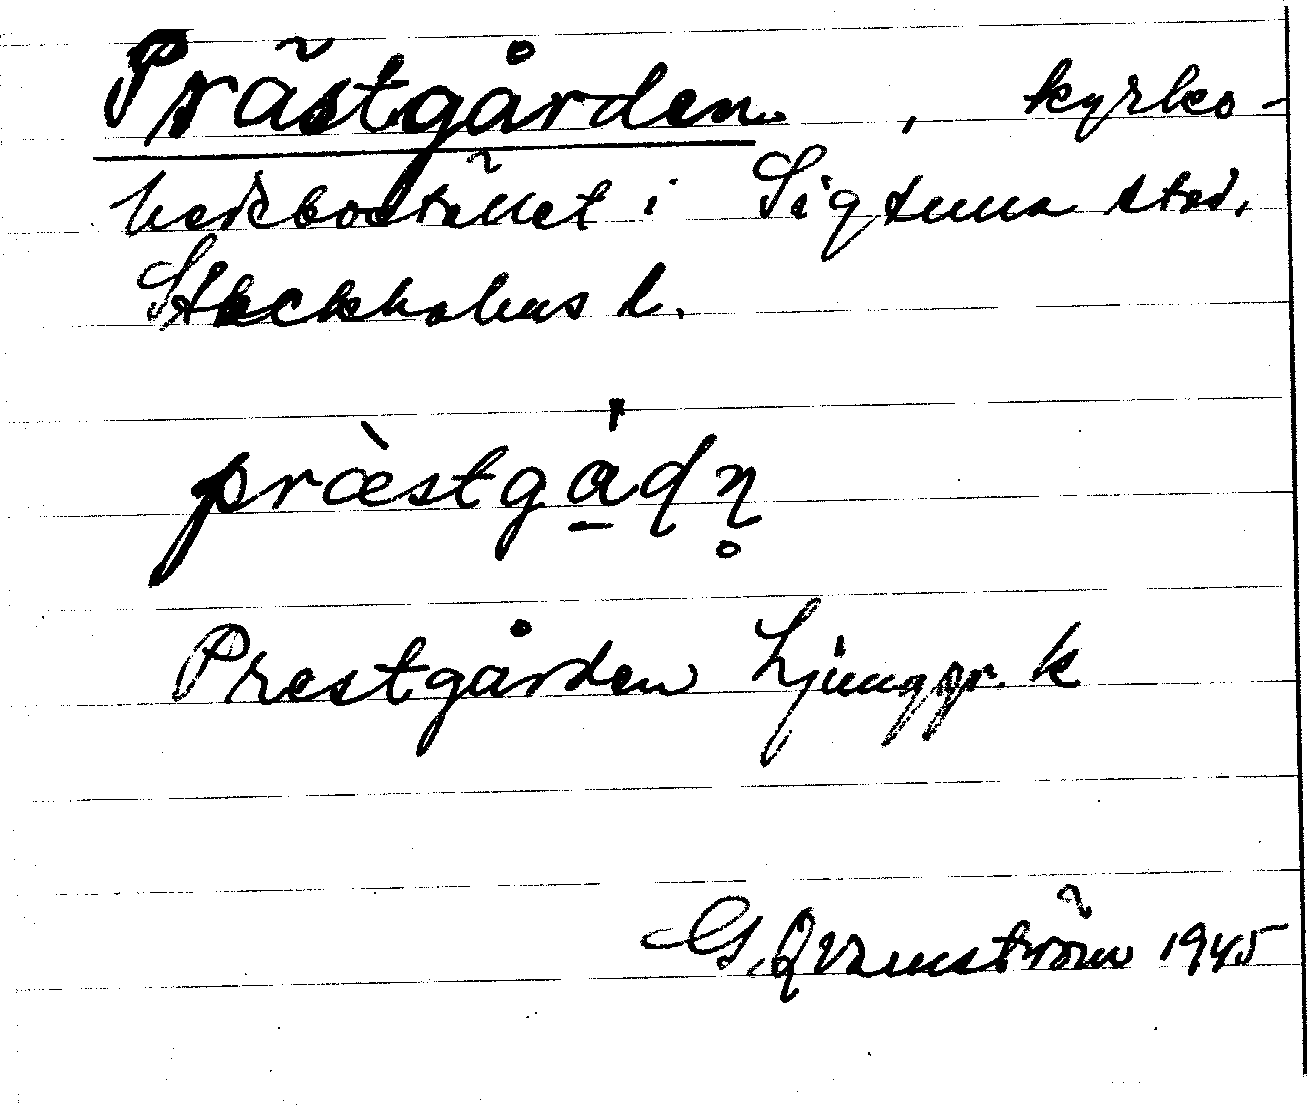 Prästgården , kyrko-
herdebostället i Sigtuna stad,
Stockholms l.
præ̀stgå̱dn̥
Prestgården Ljunggr. k
G. Qvarnström 1945